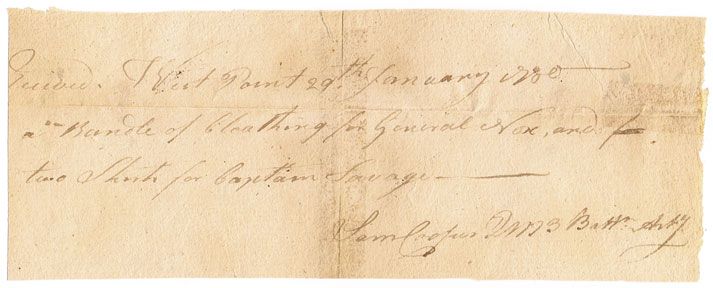 Received. West Point 29.th January 1780
a Bundle of Cloathing for General Nox, and
two Shirts for Captain Savage
Sam Cooper QM 3 Batt.n Art.y